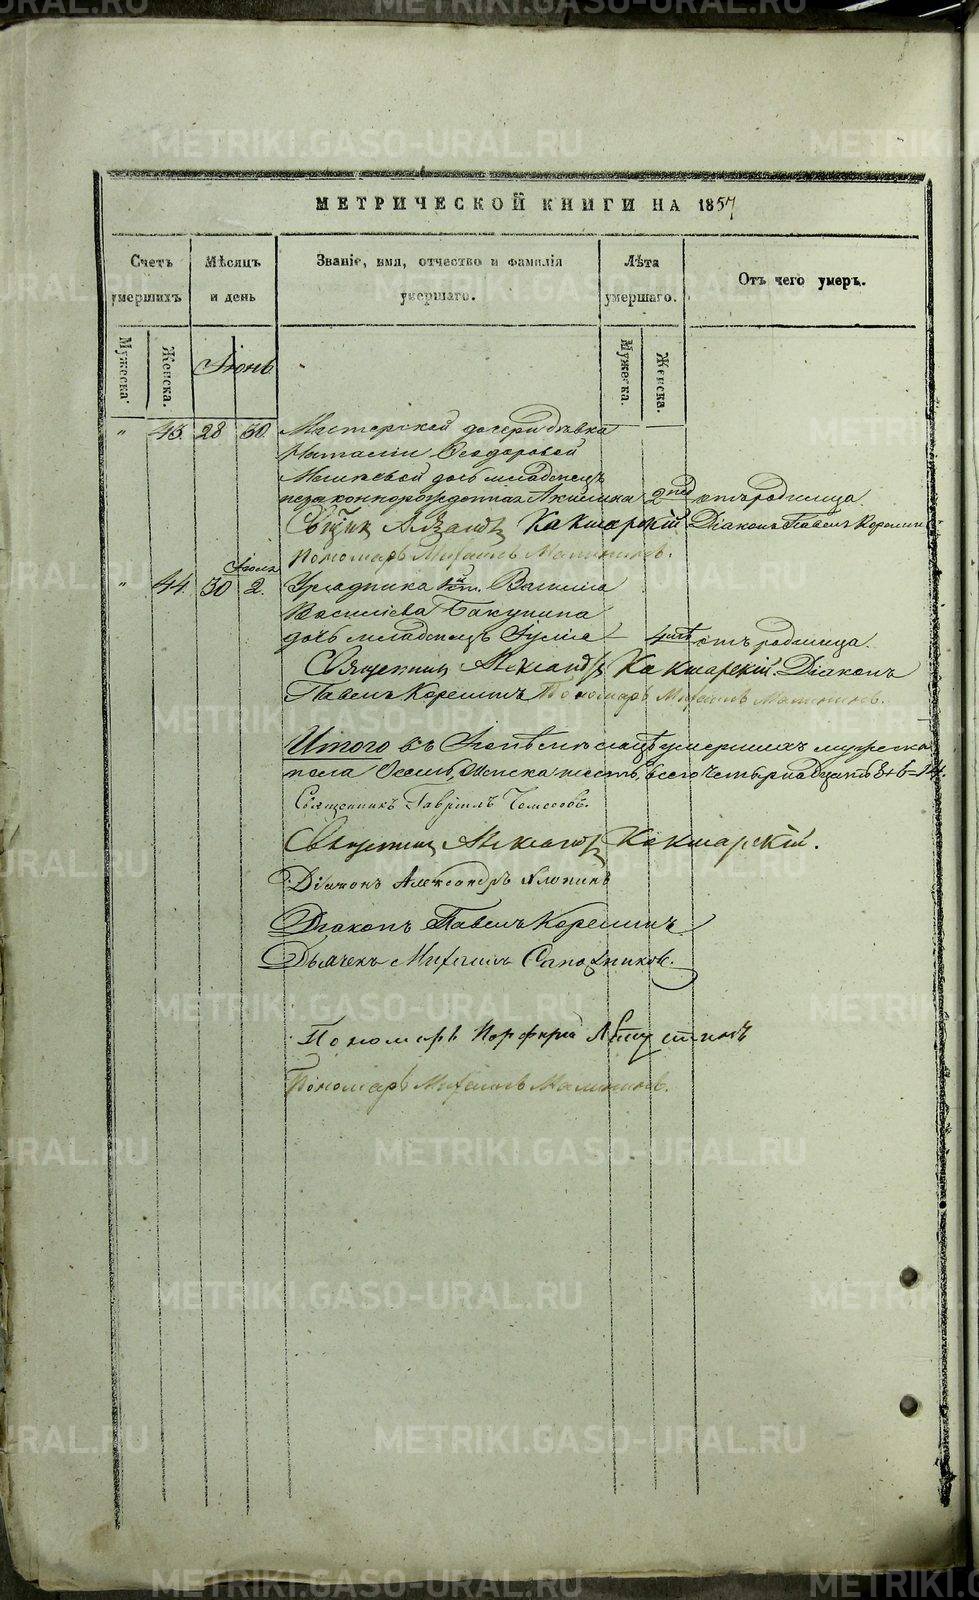 METRIKI.GASO-URAL.RU
МЕТРИЧЕСКОЙ КНИГИ НА 1857
Счетъ умершихъ
Мѣсяцъ и день
Званіе, имя, отчество и фамилія умершаго.
Лѣта умершаго.
Отъ чего умеръ.
Мужеска.
Женска.
Іюнь
Мужеска.
Женска.
" 43. 28 30. Мастерской дочери дѣвки
Наталіи Ѳеодоровой
дочь младенецъ
незаконнорожденная Акилина 2 нед отъ родимца
Какшарскій Діаконъ Павелъ Корелинъ
Пономарь Михаилъ Малининъ.
Іюля
" 44. 30 2. Урядника Василія
Васильева Бакунина
дочь младенецъ Іулія 4 отъ родимца.
Священникъ Александръ Какшарскій. Діаконъ
Павелъ Корелинъ Пономарь Михаилъ Малининъ.
Итого въ Іюнѣ мѣсяцѣ умершихъ мужеска
пола Осемь, Женска шесть, всего четырнадцать 8+6=14.
Священникъ Гавріилъ
Священникъ Александръ Какшарскій.
Діаконъ Александръ Хлопинъ
Діаконъ Павелъ Корелинъ
Дьячекъ Михаилъ Сапожниковъ.
Пономарь Порфирій
Пономарь Михаилъ Малининъ.